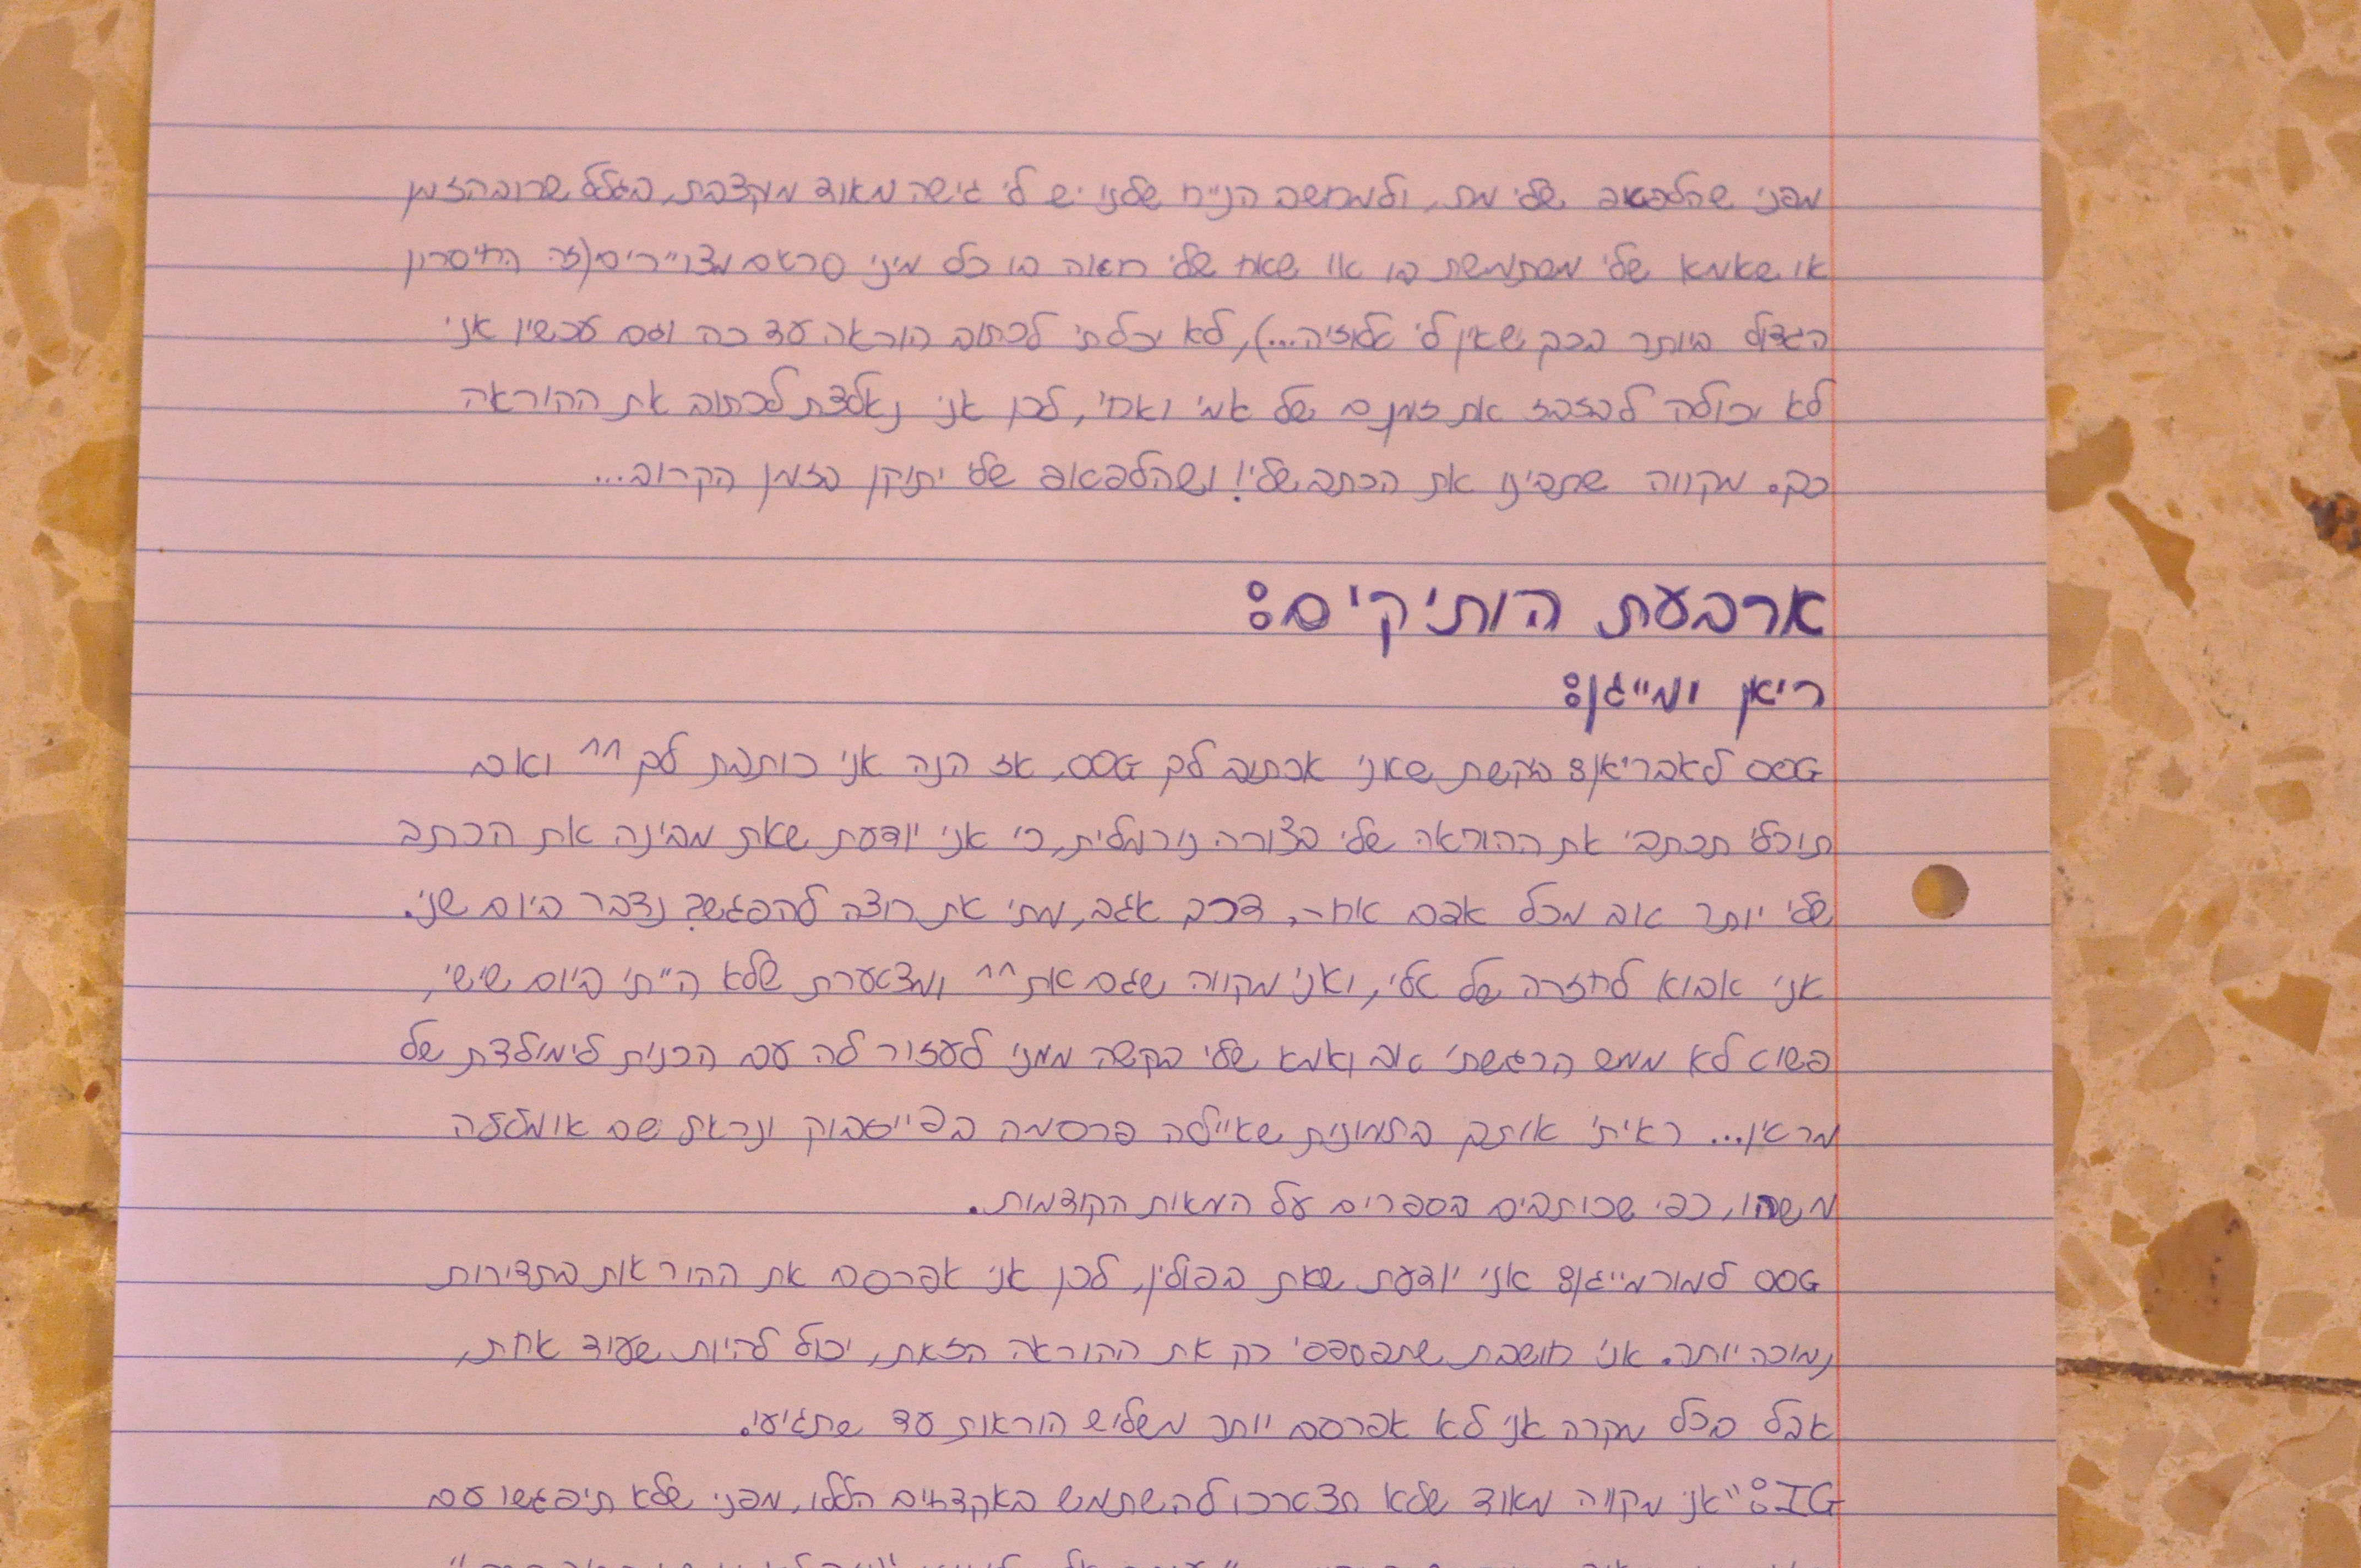 מפני שהלפטופ שלי מת, ולמחשב הנייח שלנו יש לי גישה מאוד מוקצבת, בגלל שרוב הזמן
או שאמא שלי משתמשת בו או שאח שלי רואה בו כל מיני סרטים מצויירים (זה החיסרון
הגדול ביותר בכך שאין לי טלוויזיה...), לא יכלתי לכתוב הוראה עד כה וגם עכשיו אני
לא יכולה לבזבז את זמנם של אמי ואחי, לכן אני נאלצת לכתוב את ההוראה
כך. מקווה שתבינו את הכתב שלי! ושהלפטופ שלי יתוקן בזמן הקרוב...
ארבעת הותיקים:
ריאן ומייגן:
OOG לאבריאן: בקשת שאני אכתוב לך OOG, אז הנה אני כותבת לך ^^ ואם
תוכלי תכתבי את ההוראה שלי בצורה נורמלית, כי אני יודעת שאת מבינה את הכתב
שלי יותר טוב מכל אדם אחר. דרך אגב, מתי את רוצה להפגש? נדבר ביום שני.
אני אבוא לחזרה של טלי, ואני מקווה שגם את ^^ ומצטערת שלא הייתי ביום שישי,
פשוט לא ממש הרגשתי טוב ואמא שלי בקשה ממני לעזור לה עם הכנות לימולדת של
מרטין... ראיתי אותך בתמונות שאיילה פרסמה בפייסבוק ונראת שם אומללה
משהו, כפי שכותבים בספרים על המאות הקודמות.
OOG למורמייגן: אני יודעת שאת בפולין, לכן אני אפרסם את ההוראות בתדירות
נמוכה יותר. אני חושבת שתפספסי רק את ההוראה הזאת, יכול להיות שעוד אחת,
אבל בכל מקרה אני לא אפרסם יותר משליש הוראות עד שתגיעי.
IG: "אני מקווה מאוד שלא תצטרכו להשתמש באקדחים הללו, מפני שלא תיפגשו עם